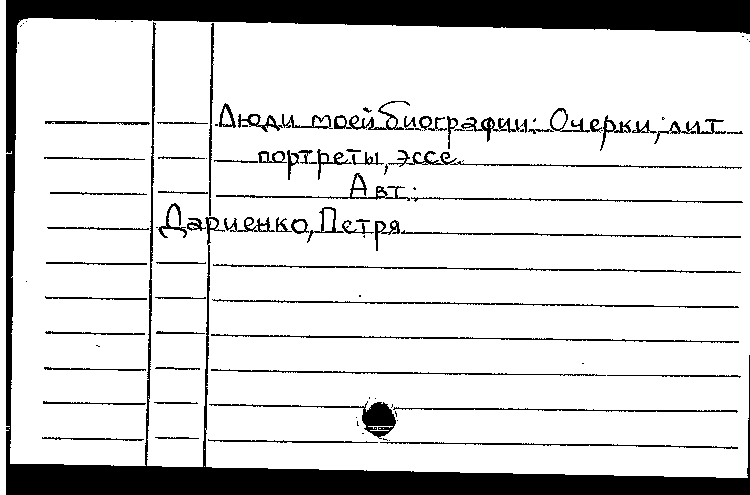 Люди моей биографии: Очерки, лит
портреты, эссе.
Авт.:
Дариенко, Петря